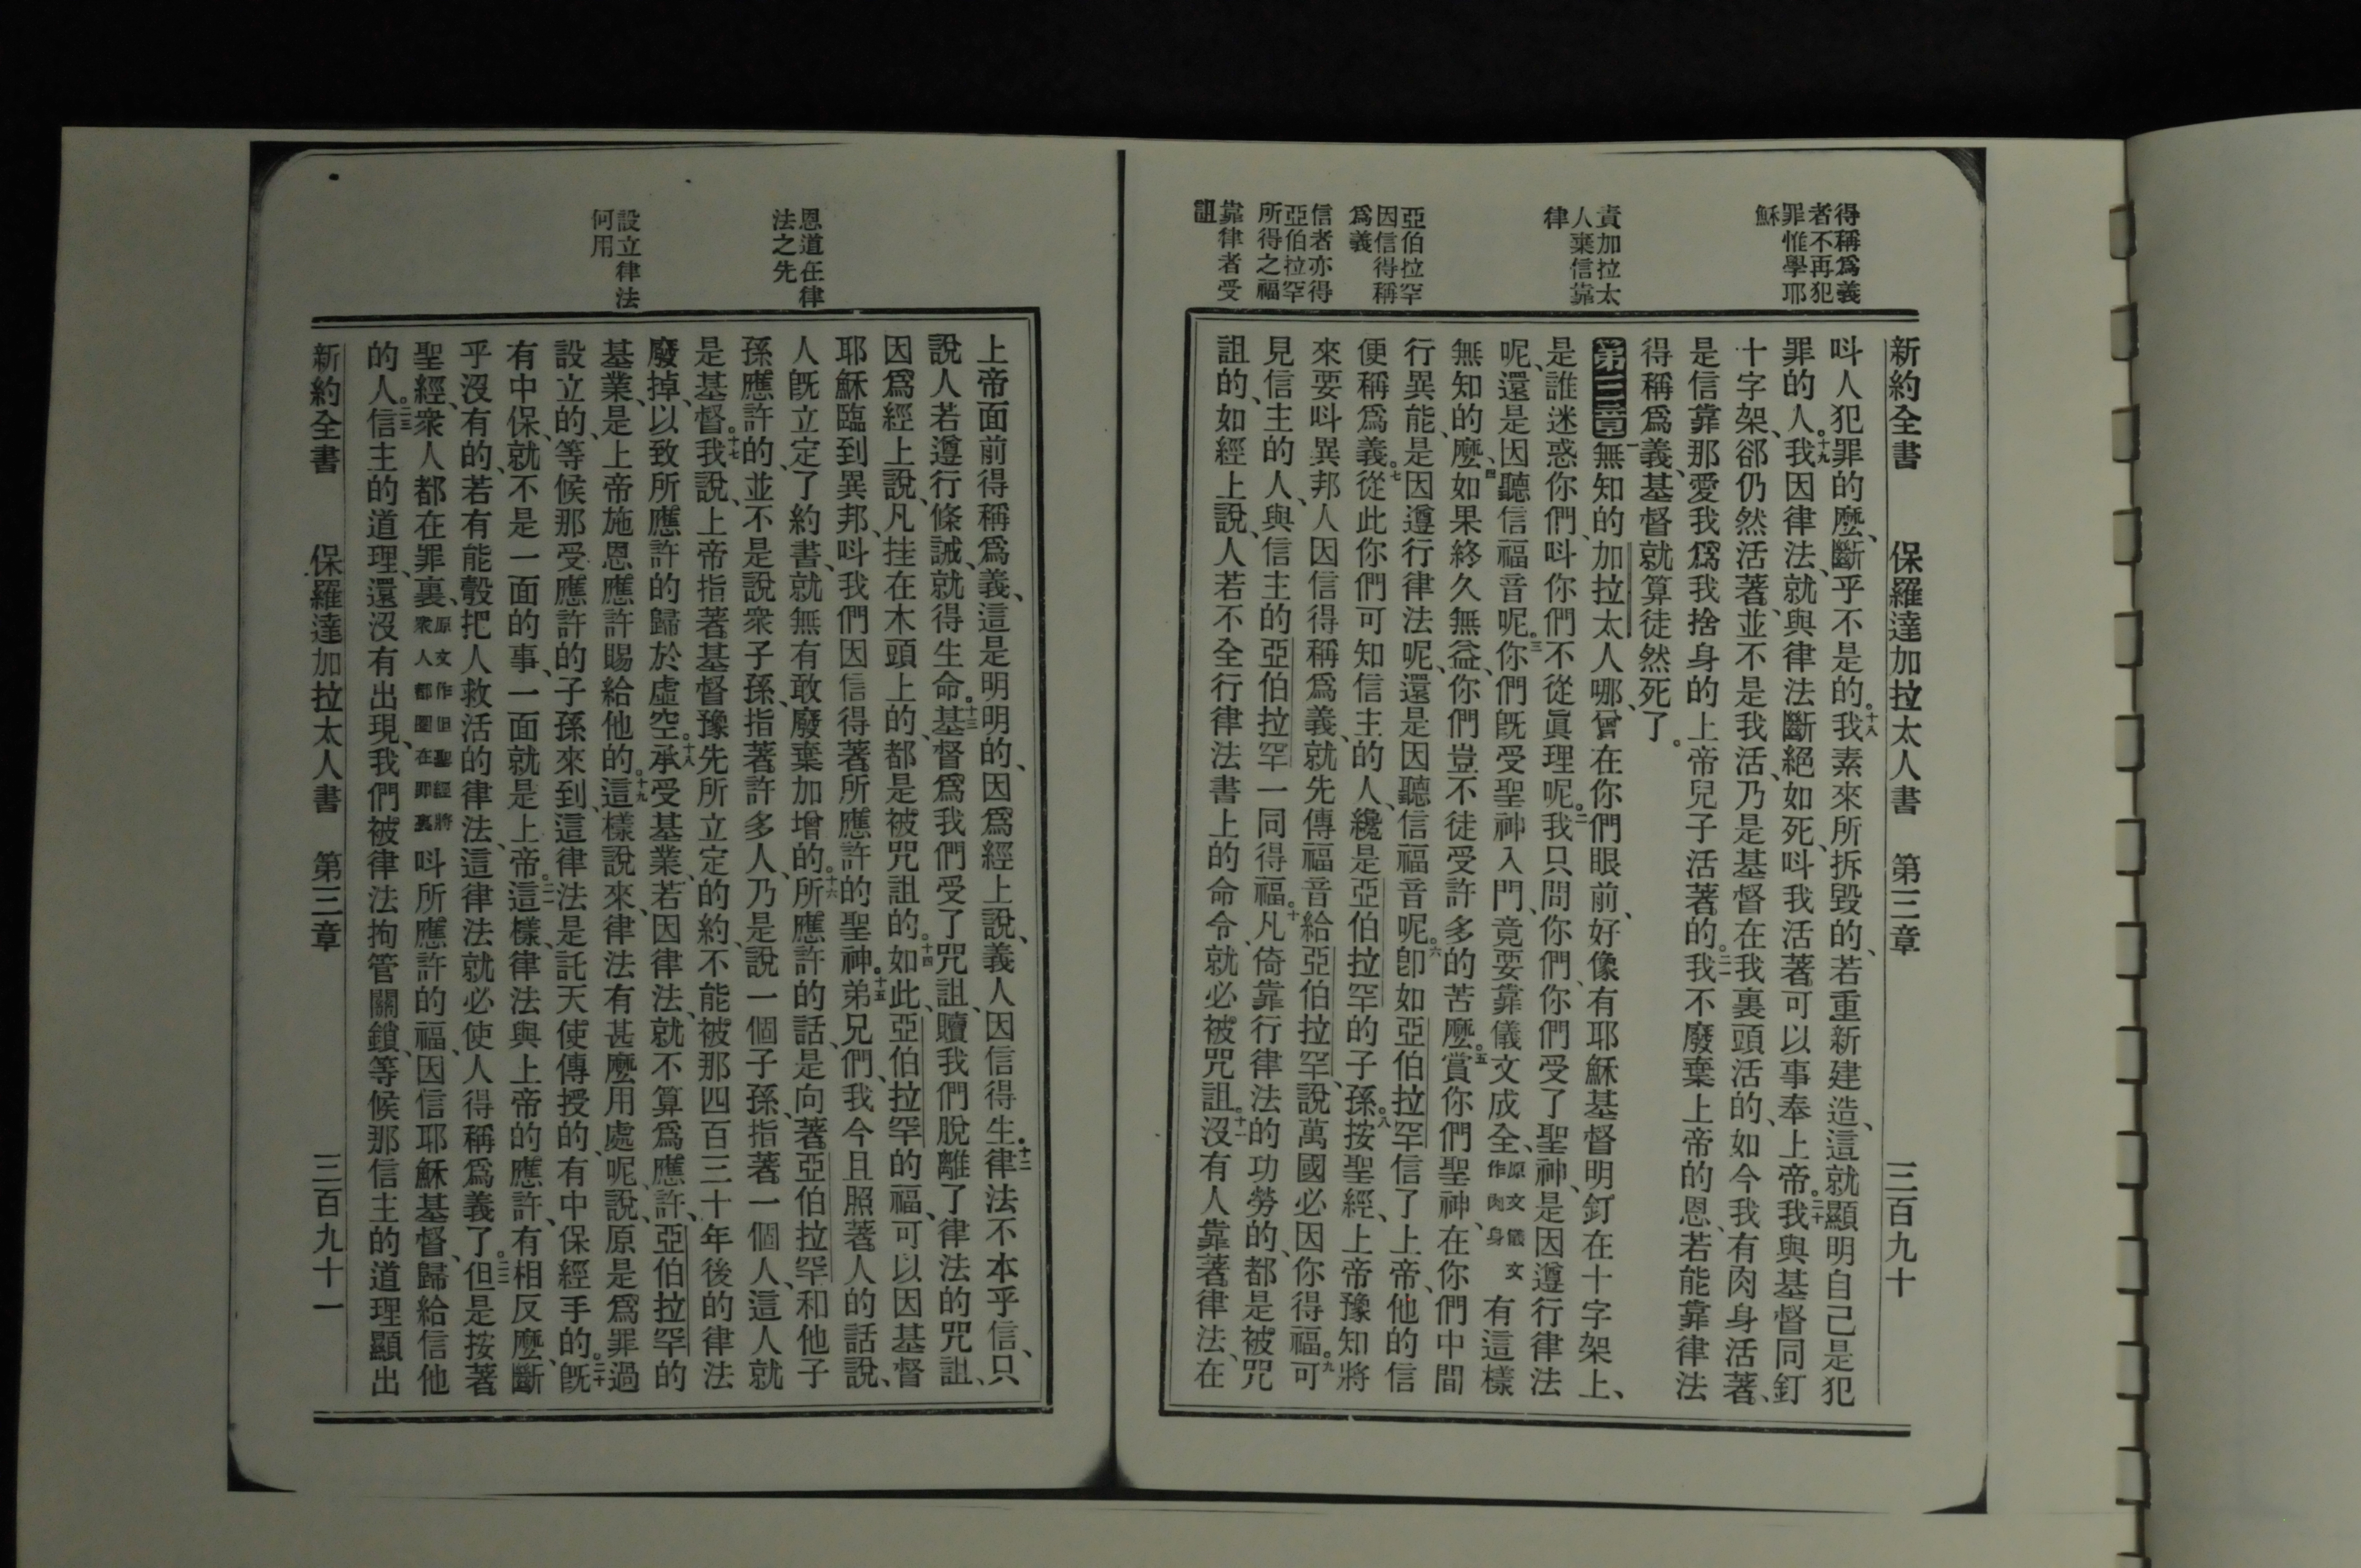 得稱爲義
者不再犯
罪惟學耶
穌
責加拉太
人棄信靠
律
亞伯拉罕
因信得稱
爲義
信者亦得
亞伯拉罕
所得之福
靠律者受
詛
新約全書 保羅達加拉太人書 第三章 三百九十
呌人犯罪的麽、斷乎不是的。十八我素來所拆毀的、若重新建造、這就顯明自己是犯
罪的人。十九我因律法、就與律法斷絕如死、呌我活著可以事奉上帝。二十我與基督同釘
十字架、郤仍然活著、並不是我活、乃是基督在我裏頭活的、如今我有肉身活著、
是信靠那愛我爲我捨身的上帝兒子活著的。二一我不廢棄上帝的恩、若能靠律法
得稱爲義、基督就算徒然死了。
第三章一無知的加拉太人哪、曾在你們眼前、好像有耶穌基督明釘在十字架上、
是誰迷惑你們、呌你們不從眞理呢。二我只問你們、你們受了聖神、是因遵行律法
呢、還是因聽信福音呢。三你們旣受聖神入門、竟要靠儀文成全、原文儀文作肉身有這樣
無知的麽、四如果終久無益、你們豈不徒受許多的苦麽。五賞你們聖神、在你們中間
行異能、是因遵行律法呢、還是因聽信福音呢。六卽如亞伯拉罕信了上帝、他的信
便稱爲義。七從此你們可知信主的人、纔是亞伯拉罕的子孫。八按聖經、上帝豫知將
來要呌異邦人因信得稱爲義、就先傳福音給亞伯拉罕、說萬國必因你得福。九可
見信主的人、與信主的亞伯拉罕一同得福。十凡倚靠行律法的功勞的、都是被咒
詛的、如經上說、人若不全行律法書上的命令、就必被咒詛。十一沒有人靠著律法、在
恩道在律
法之先
設立律法
何用
上帝面前得稱爲義、這是明明的、因爲經上說、義人因信得生。十二律法不本乎信、只
說人若遵行條誡、就得生命。十三基督爲我們受了咒詛、贖我們脫離了律法的咒詛、
因爲經上說、凡挂在木頭上的、都是被咒詛的。十四如此、亞伯拉罕的福、可以因基督
耶穌臨到異邦、呌我們因信得著所應許的聖神。十五弟兄們、我今且照著人的話說、
人旣立定了約書、就無有敢廢棄加增的。十六所應許的話、是向著亞伯拉罕和他子
孫應許的、並不是說衆子孫、指著許多人、乃是說一個子孫、指著一個人、這人就
是基督。十七我說、上帝指著基督豫先所立定的約、不能被那四百三十年後的律法
廢掉、以致所應許的歸於虛空。十八承受基業、若因律法、就不算爲應許、亞伯拉罕的
基業、是上帝施恩應許賜給他的。十九這樣說來、律法有甚麽用處呢、說、原是爲罪過
設立的、等候那受應許的子孫來到、這律法是託天使傳授的、有中保經手的。二十旣
有中保、就不是一面的事、一面就是上帝。二一這樣、律法與上帝的應許、有相反麽、斷
乎沒有的、若有能彀把人救活的律法、這律法就必使人得稱爲義了。二二但是按著
聖經、衆人都在罪裏、原文作但聖經將衆人都圈在罪裏呌所應許的福、因信耶穌基督、歸給信他
的人。二三信主的道理、還沒有出現、我們被律法拘管關鎖、等候那信主的道理顯出
新約全書 保羅達加拉太人書 第三章 三百九十一